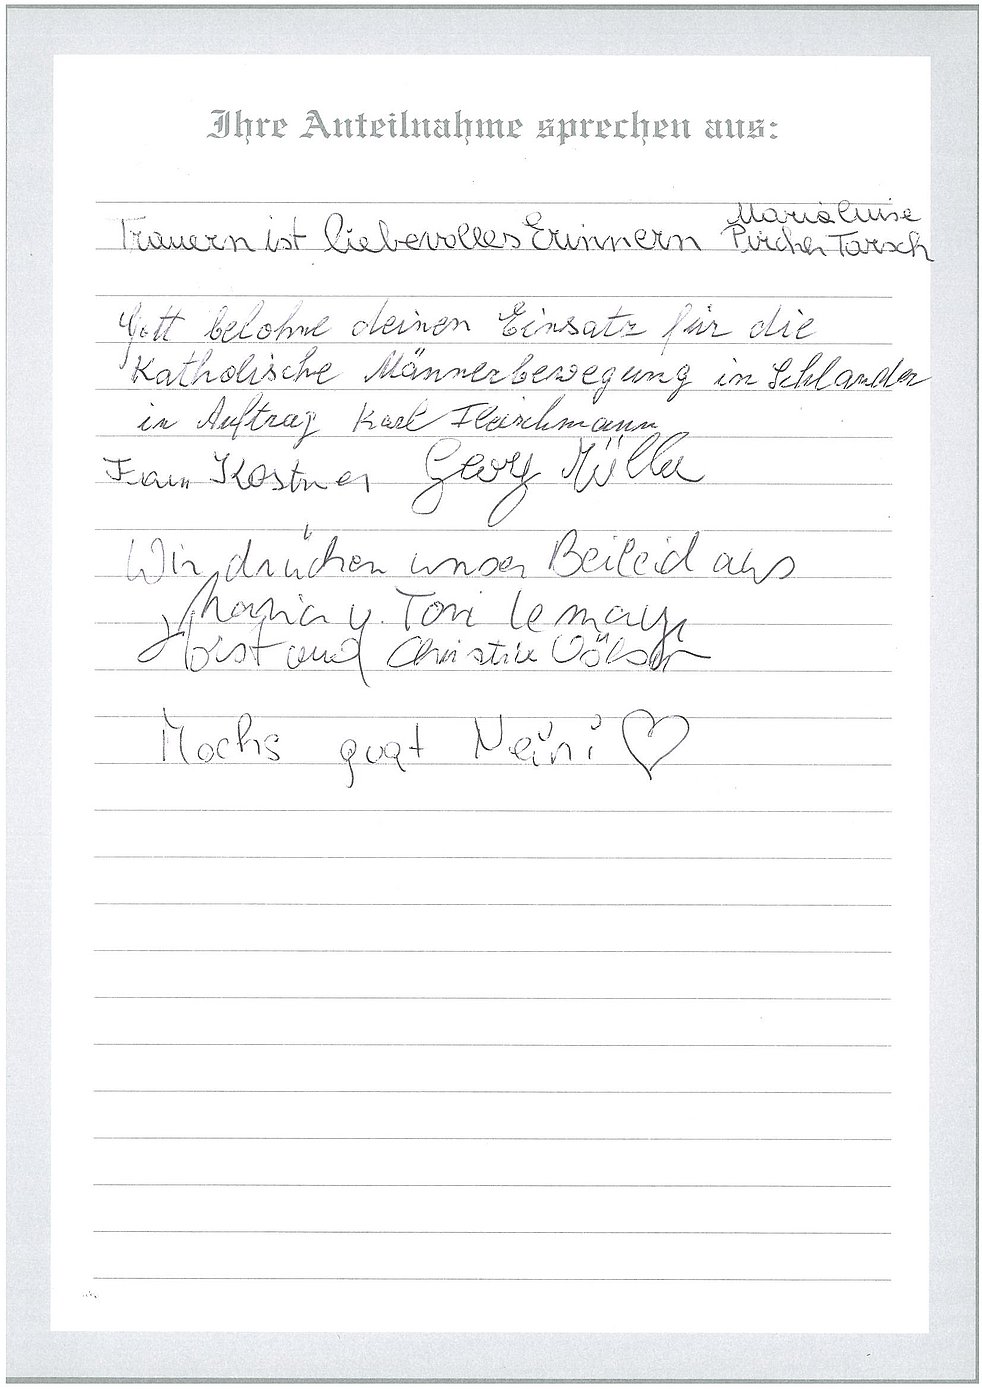 Ihre Anteilnahme sprechen aus:
Trauern ist liebevolles Erinnern Marialuise
Pircher Tarsch
Gott belohne deinen Einsatz für die
Katholische Männerbewegung in Schlanders
in Auftrag Karl Fleischmann
Kostner Georg Müller
Wir drücken unser Beileid aus
Maria u. Toni
Horst und Christine
Mochs guat Neini ♡